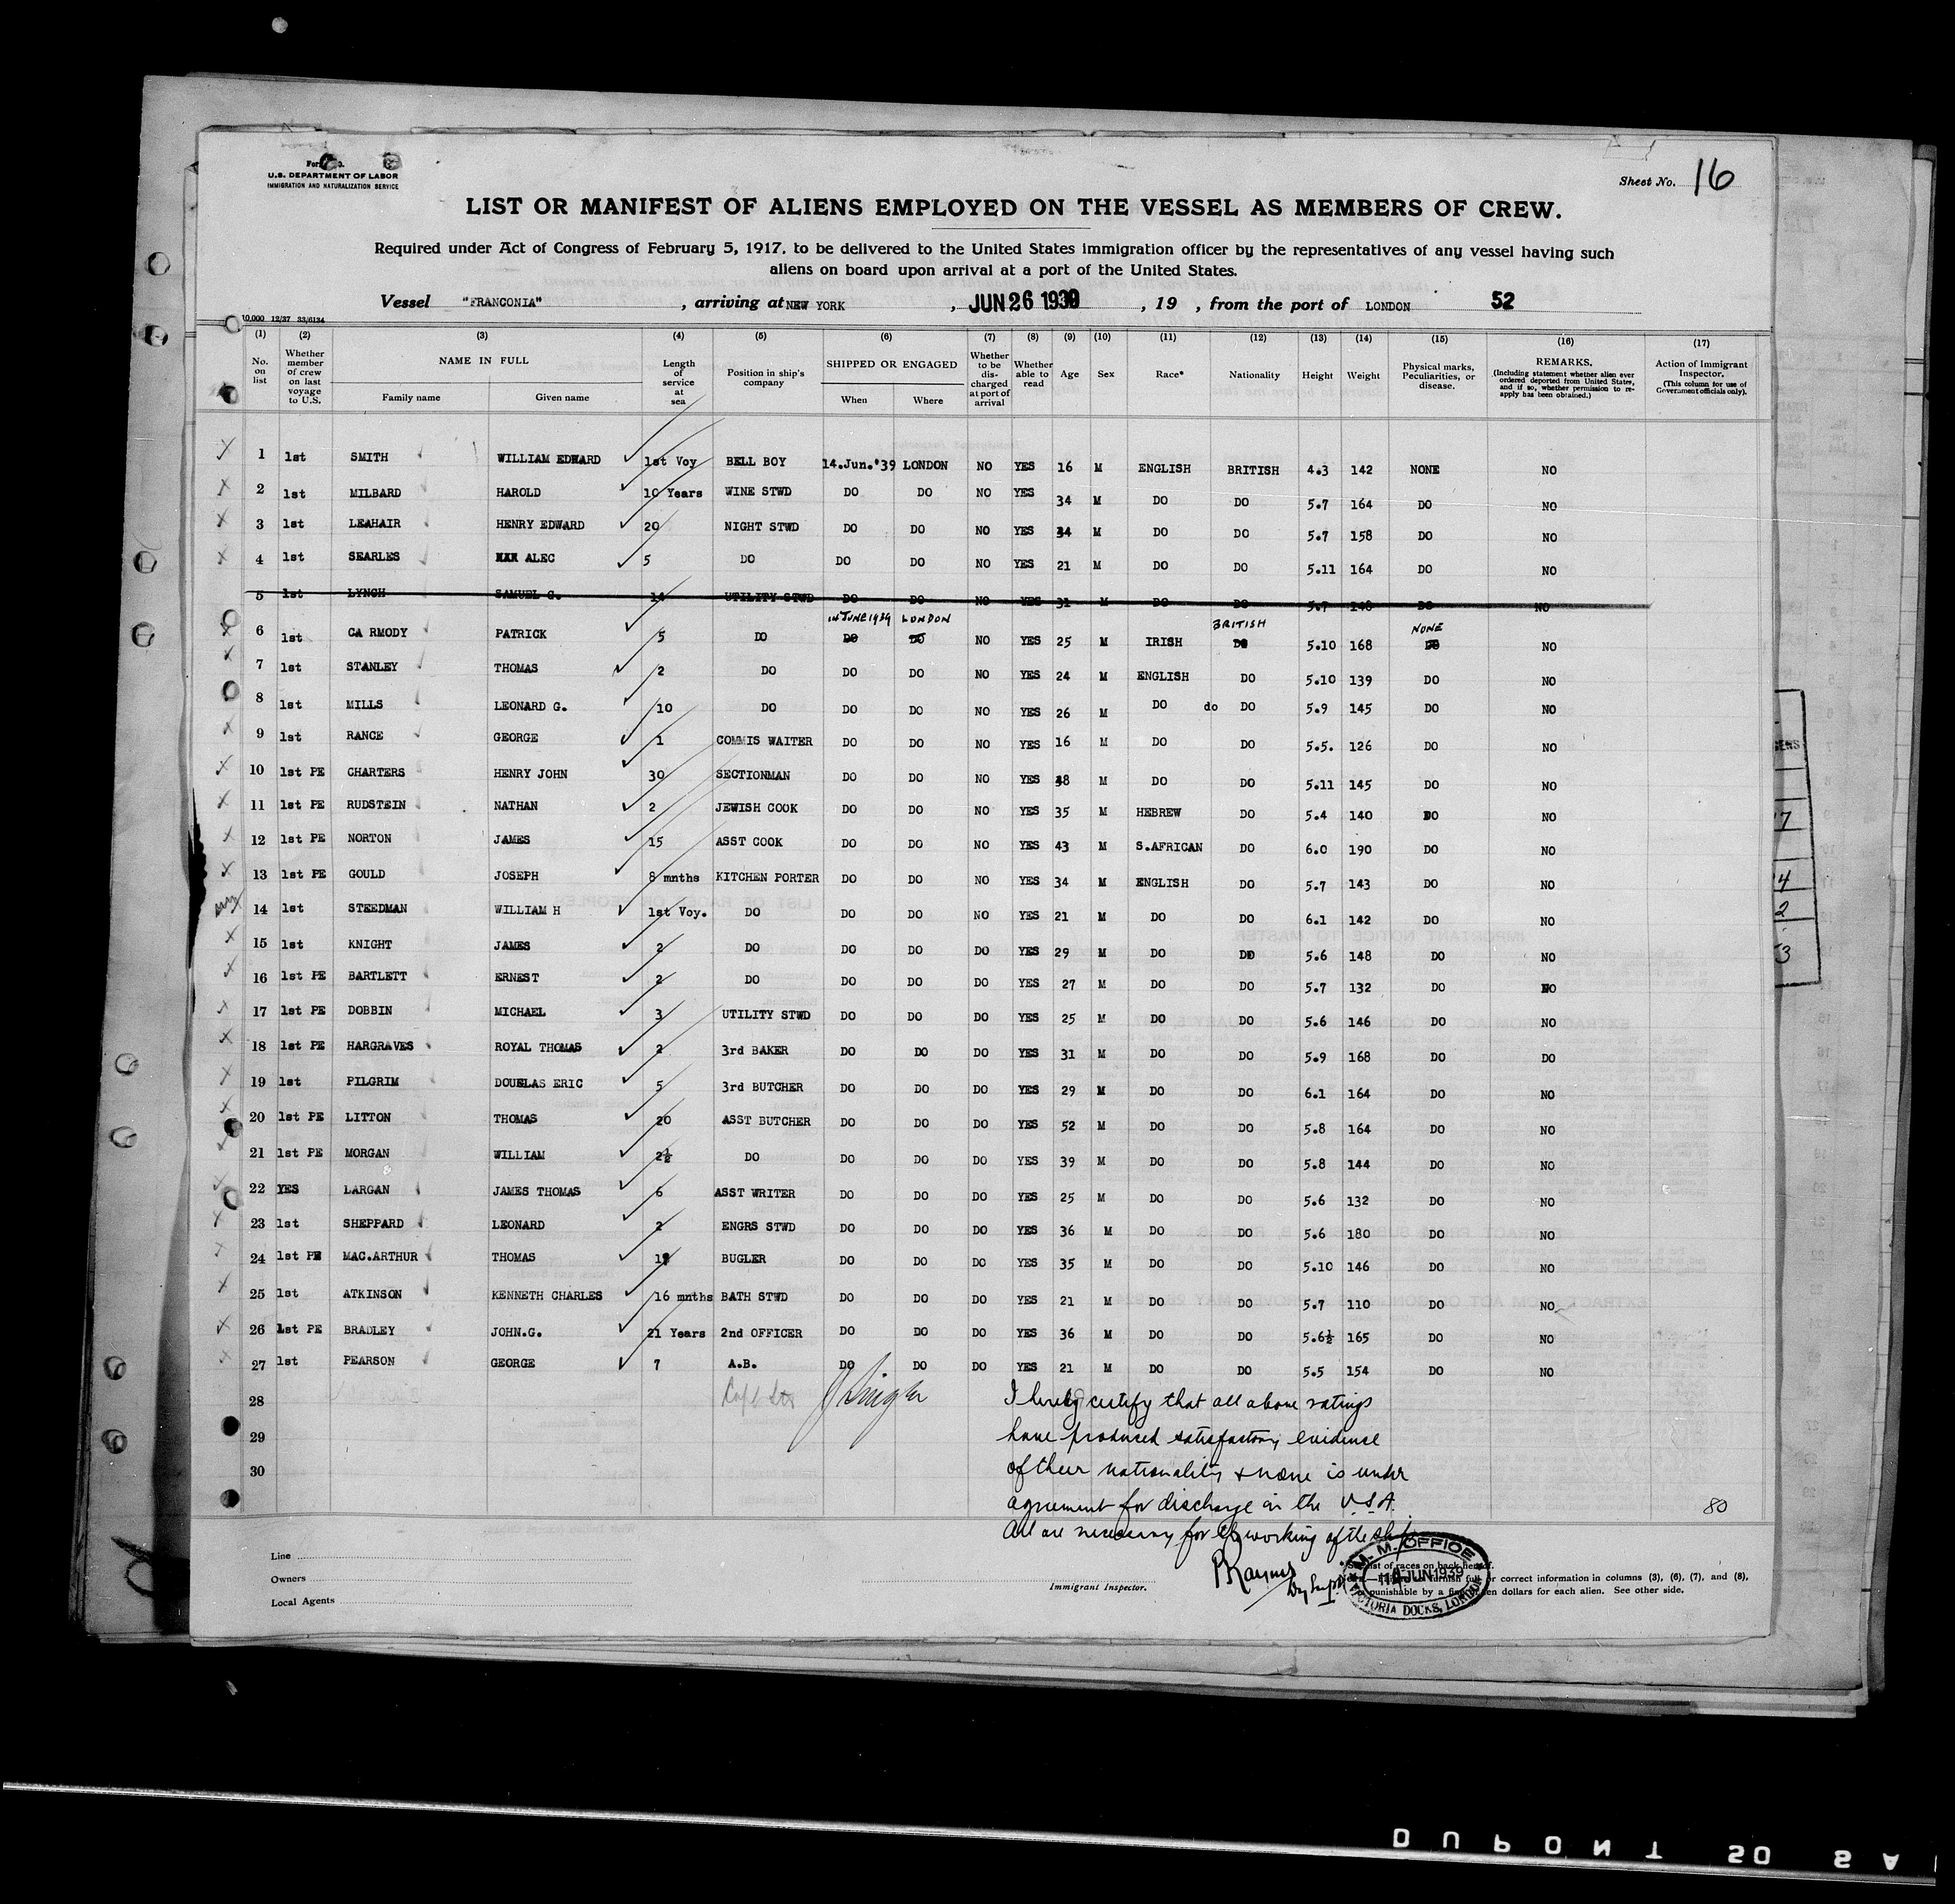 U.S. DEPARTMENT OF LABOR
IMMIGRATION AND NATURALIZATION SERVICE
Sheet No. 16
LIST OR MANIFEST OF ALIENS EMPLOYED ON THE VESSEL AS MEMBERS OF CREW.
Required under Act of Congress of February 5, 1917, to be delivered to the United States immigration officer by the representatives of any vessel having such
aliens on board upon arrival at a port of the United States.
Vessel "FRANCONIA", arriving at NEW YORK, JUN 26 1939, 19 , from the port of LONDON 52
10,000 12/37 33/6134
(1) (2) (3) (4) (5) (6) (7) (8) (9) (10) (11) (12) (13) (14) (15) (16) (17)
No. on list
Whether member of crew on last voyage to U.S.
NAME IN FULL
Family name Given name
Length of service at sea
Position in ship's company
SHIPPED OR ENGAGED
When Where
Whether to be discharged at port of arrival
Whether able to read
Age Sex Race* Nationality Height Weight
Physical marks, Peculiarities, or disease.
REMARKS.
(Including statement whether alien ever ordered deported from United States, and if so, whether permission to re-apply has been obtained.)
Action of Immigrant Inspector.
(This column for use of Government officials only).
1 1st SMITH WILLIAM EDWARD 1st Voy BELL BOY 14.Jun.'39 LONDON NO YES 16 M ENGLISH BRITISH 4.3 142 NONE NO
2 1st MILBARD HAROLD 10 Years WINE STWD DO DO NO YES 34 M DO DO 5.7 164 DO NO
3 1st LEAHAIR HENRY EDWARD 20 NIGHT STWD DO DO NO YES 34 M DO DO 5.7 158 DO NO
4 1st SEARLES ALEC 5 DO DO DO NO YES 21 M DO DO 5.11 164 DO NO
5 1st LYNCH SAMUEL G. 14 UTILITY STWD DO DO NO YES 31 M DO DO 5.7 148 DO NO
14 JUNE 1939 LONDON BRITISH NONE
6 1st CA RMODY PATRICK 5 DO DO DO NO YES 25 M IRISH DO 5.10 168 DO NO
7 1st STANLEY THOMAS 2 DO DO DO NO YES 24 M ENGLISH DO 5.10 139 DO NO
8 1st MILLS LEONARD G. 10 DO DO DO NO YES 26 M DO do DO 5.9 145 DO NO
9 1st RANCE GEORGE 1 COMMIS WAITER DO DO NO YES 16 M DO DO 5.5. 126 DO NO
10 1st PE CHARTERS HENRY JOHN 30 SECTIONMAN DO DO NO YES 48 M DO DO 5.11 145 DO NO
11 1st PE RUDSTEIN NATHAN 2 JEWISH COOK DO DO NO YES 35 M HEBREW DO 5.4 140 DO NO
12 1st PE NORTON JAMES 15 ASST COOK DO DO NO YES 43 M S.AFRICAN DO 6.0 190 DO NO
13 1st PE GOULD JOSEPH 8 mnths KITCHEN PORTER DO DO NO YES 34 M ENGLISH DO 5.7 143 DO NO
14 1st STEEDMAN WILLIAM H 1st Voy. DO DO DO NO YES 21 M DO DO 6.1 142 DO NO
15 1st KNIGHT JAMES 2 DO DO DO DO YES 29 M DO DO 5.6 148 DO NO
16 1st PE BARTLETT ERNEST 2 DO DO DO DO YES 27 M DO DO 5.7 132 DO NO
17 1st PE DOBBIN MICHAEL 3 UTILITY STWD DO DO DO YES 25 M DO DO 5.6 146 DO NO
18 1st PE HARGRAVES ROYAL THOMAS 2 3rd BAKER DO DO DO YES 31 M DO DO 5.9 168 DO DO
19 1st PILGRIM DOUGLAS ERIC 5 3rd BUTCHER DO DO DO YES 29 M DO DO 6.1 164 DO NO
20 1st PE LITTON THOMAS 20 ASST BUTCHER DO DO DO YES 52 M DO DO 5.8 164 DO NO
21 1st PE MORGAN WILLIAM 2½ DO DO DO DO YES 39 M DO DO 5.8 144 DO NO
22 YES LARGAN JAMES THOMAS 6 ASST WRITER DO DO DO YES 25 M DO DO 5.6 132 DO NO
23 1st SHEPPARD LEONARD 2 ENGRS STWD DO DO DO YES 36 M DO DO 5.6 180 DO NO
24 1st PE MAC.ARTHUR THOMAS BUGLER DO DO DO YES 35 M DO DO 5.10 146 DO NO
25 1st ATKINSON KENNETH CHARLES 16 mnths BATH STWD DO DO DO YES 21 M DO DO 5.7 110 DO NO
26 1st PE BRADLEY JOHN.G. 21 Years 2nd OFFICER DO DO DO YES 36 M DO DO 5.6½ 165 DO NO
27 1st PEARSON GEORGE 7 A.B. DO DO DO YES 21 M DO DO 5.5 154 DO NO
28 I hereby certify that all above ratings
29 have produced satisfactory evidence
30 of their nationality & none is under
agreement for discharge in the U.S.A. 80
All are necessary for the working of the ship.
Line
Owners
Local Agents
Immigrant Inspector.
M.M. OFFICE
JUN 1939
VICTORIA DOCKS, LONDON
list of races on back hereof.
furnish full or correct information in columns (3), (6), (7), and (8),
punishable by a fine of ten dollars for each alien. See other side.
DUPONT SO SA